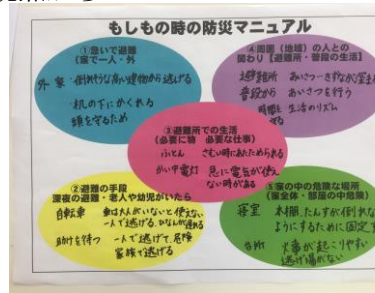 もしもの時の防災マニュアル
①急いで避難
(家で一人・外
外 家・倒れそうな高い建物から逃げる
・机の下にかくれる
頭を守るため
④周囲(地域)の人との
関わり【避難所・普段の生活】
避難所 あいさつ
普段から あいさつを行う
生活のリズム
③避難所での生活
(必要に物 必要な仕事)
ふとん さむい時にあたためられる
かい中電灯 急に電気が使え
ない時がある
②避難の手段
深夜の避難・老人や幼児がいたら
自転車 車は大人がいないと使えない
一人で逃げる、
助けを待つ 一人で逃げて、危険
家族で逃げる
⑤家の中の危険な場所
(家全体・部屋の中危険
寝室 本棚、たんすが倒れな
いようにするために固定す
台所 火事が起こりやすい
逃げ場がない